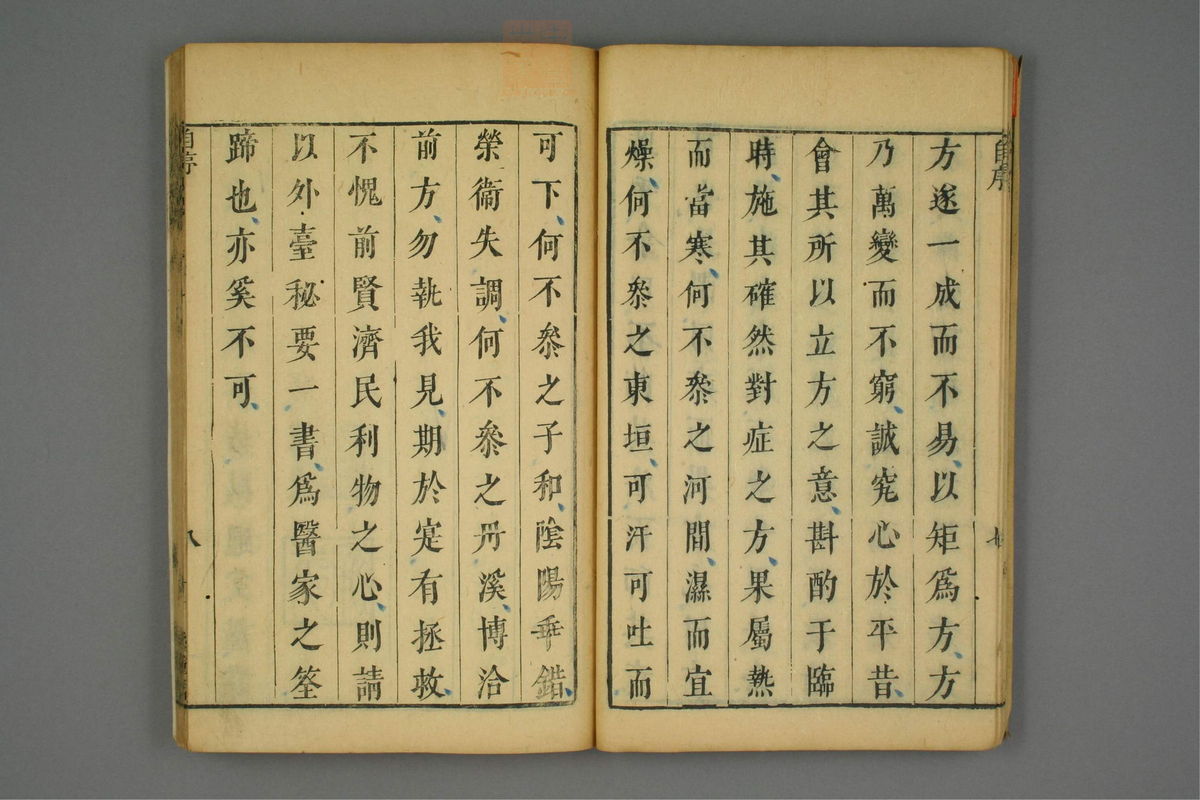 自序
方遂一成而不易、以矩爲方、方
乃萬變而不窮、誠究心於平昔、
會其所以立方之意、斟酌于臨
時、施其確然對症之方、果屬熱
而當寒、何不叅之河間、濕而宜
燥、何不叅之東垣、可汗可吐而
七
可下、何不叅之子和、陰陽乖錯、
榮衞失調、何不叅之丹溪、博洽
前方、勿執我見、期於寔有拯救、
不愧前賢濟民利物之心、則請
以外臺秘要一書、爲醫家之筌
蹄也、亦奚不可、
自序
八